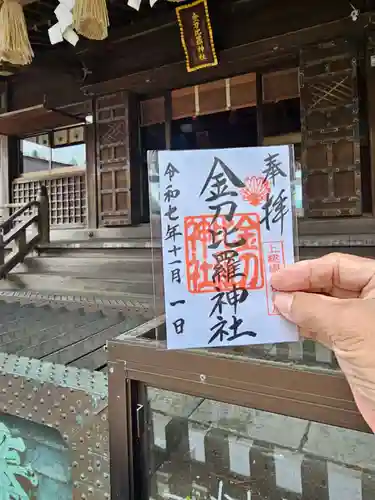 金刀比羅神社
奉拝
金刀比羅神社
令和七年十一月一日
金刀
神社